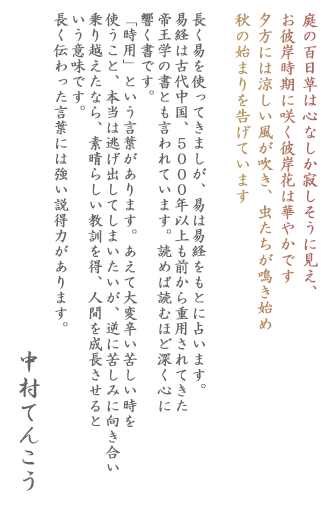 庭の百日草は心なしか寂しそうに見え、
お彼岸時期に咲く彼岸花は華やかです
夕方には涼しい風が吹き、虫たちが鳴き始め
秋の始まりを告げています
長く易を使ってきましが、易は易経をもとに占います。
易経は古代中国、５０００年以上も前から重用されてきた
帝王学の書とも言われています。読めば読むほど深く心に
響く書です。
「時用」という言葉があります。あえて大変辛い苦しい時を
使うこと、本当は逃げ出してしまいたいが、逆に苦しみに向き合い
乗り越えたなら、素晴らしい教訓を得、人間を成長させると
いう意味です。
長く伝わった言葉には強い説得力があります。
中村てんこう